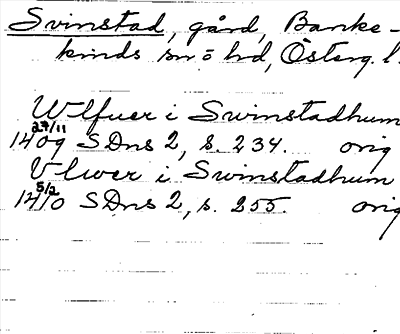 Svinstad, gård, Banke-
kinds sn o hd, Österg. l.
Wlfuer i Swinstadhum
27/11
1409 SDns 2, s. 234. orig
Vlwer i Swinstadhum
5/2
1410 SDns 2, s. 255. orig